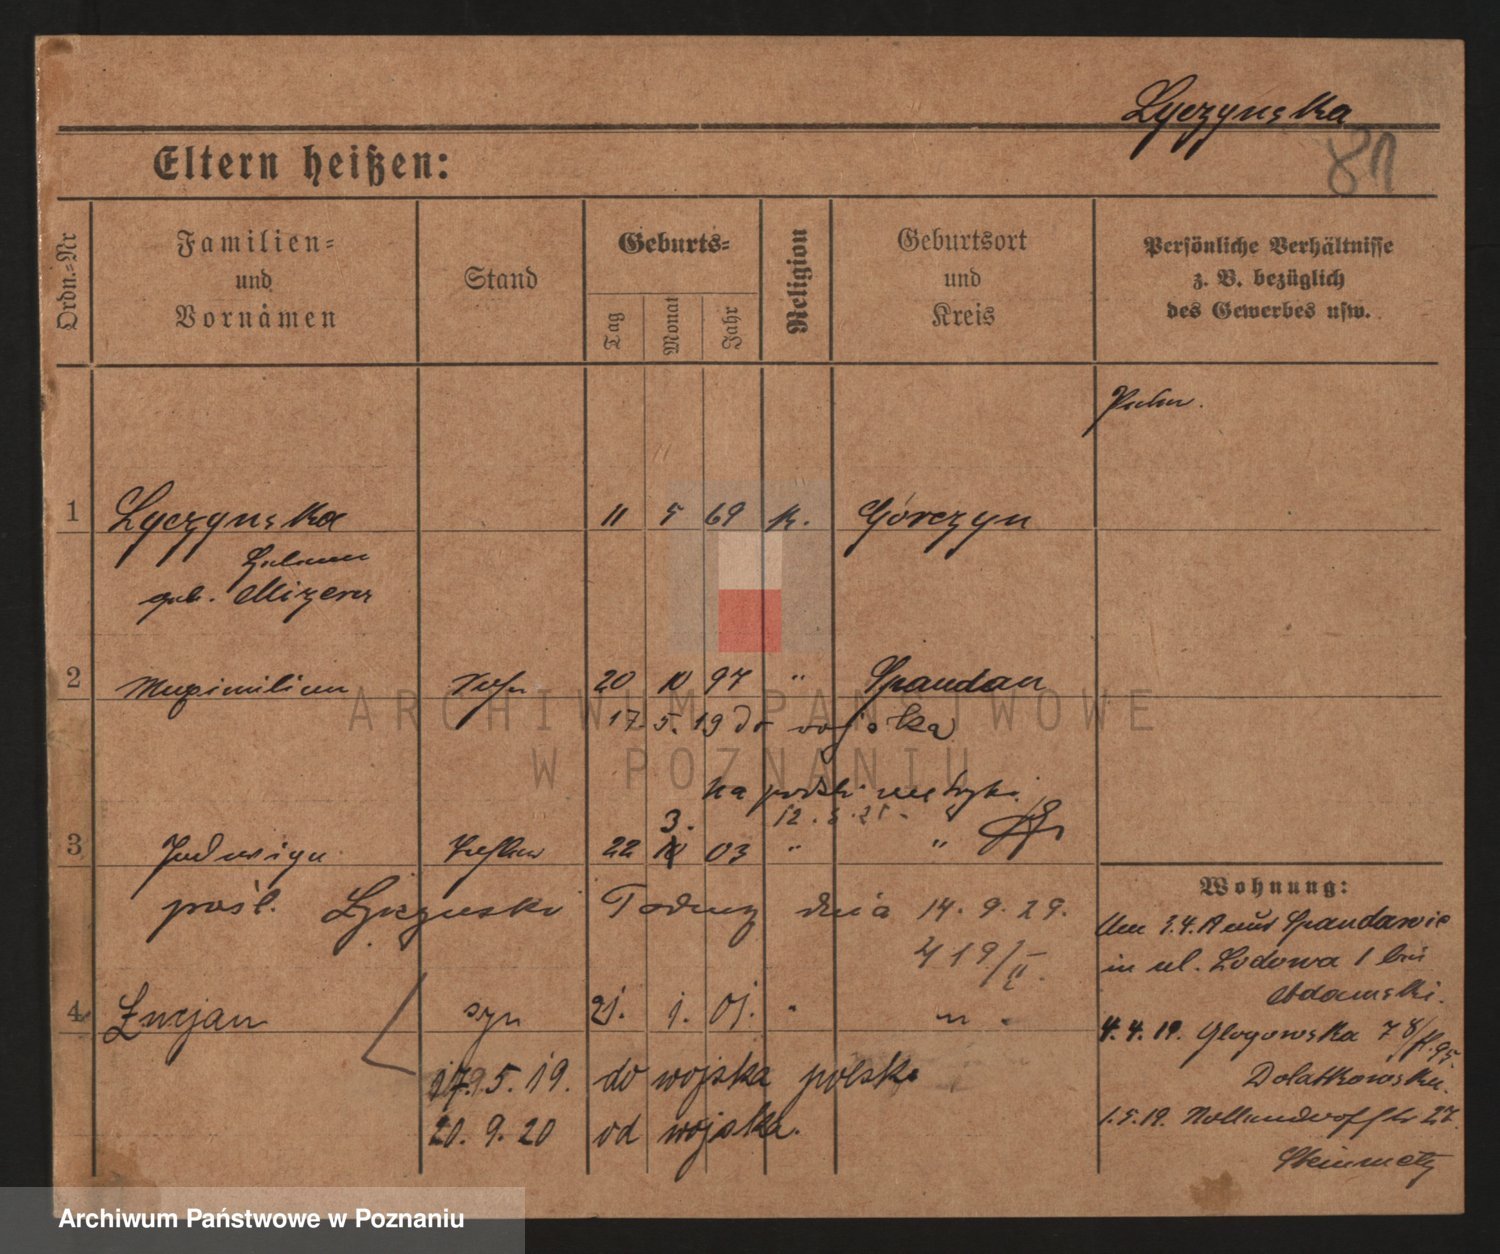 Lyczynska
81
Eltern heißen:
Ordn.=Nr
Familien=
und
Vornamen
Stand
Geburts=
Tag
Monat
Jahr
Religion
Geburtsort
und
Kreis
Persönliche Verhältnisse
z. B. bezüglich
des Gewerbes usw.
1 Lyczynska 11 5 69 k. Górczyn
geb. Mizera
2 Maximilian Sohn 20 10 97 " Spandau
17. 5. 19 do wojska
na polski
12. 21.
3.
3 Jadwiga 22 10 03 " "
pośl. Łyczynski dnia 14. 9. 29.
419/II.
4 Łucjan syn 21. 1. 01. " " .
5. 19. do wojska polsk.
20. 9. 20 od wojska.
Wohnung:
3.4.19 aus Spandau
in ul. Lodowa 1 bei
Adamski.
4. 4. 19. Glogowska
Dolatkowska.
1.5.19. 27.
Steinmetz
ARCHIWUM PAŃSTWOWE
W POZNANIU
Archiwum Państwowe w Poznaniu